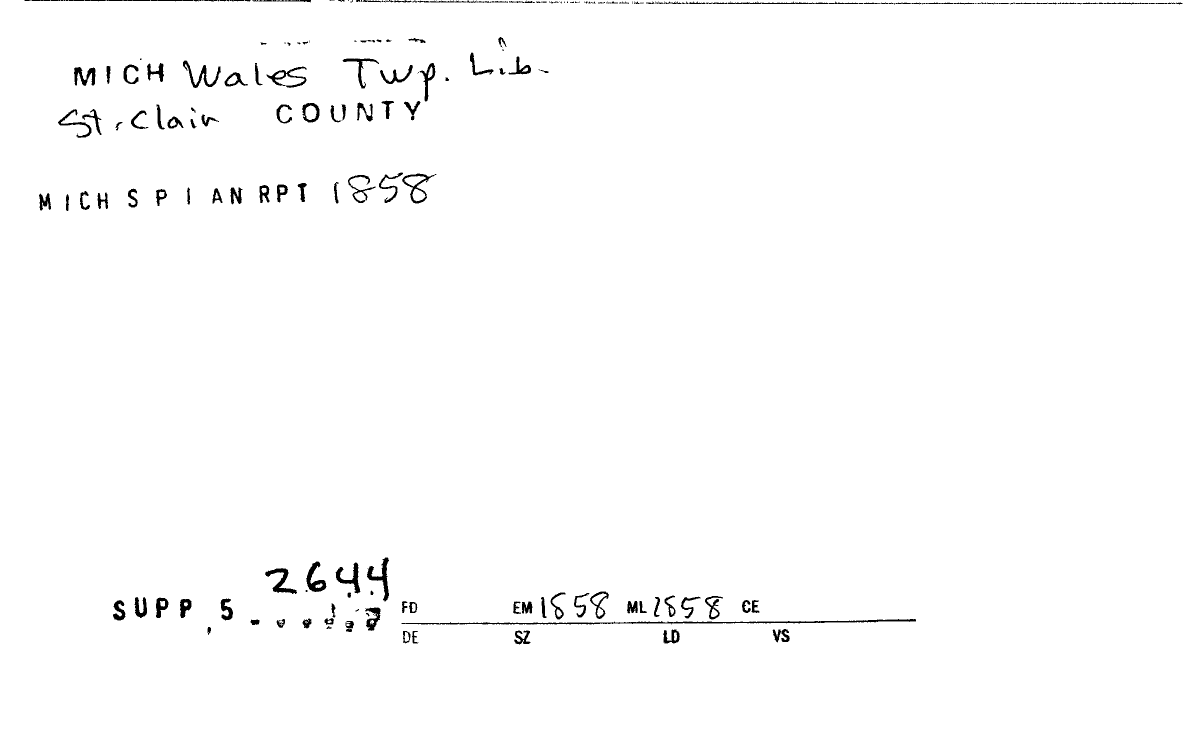 MICH Wales Twp. Lib.
St. Clair COUNTY
MICH S P I AN RPT 1858
2644
SUPP, 5
FD EM 1858 ML 1858 CE
DE SZ LD VS